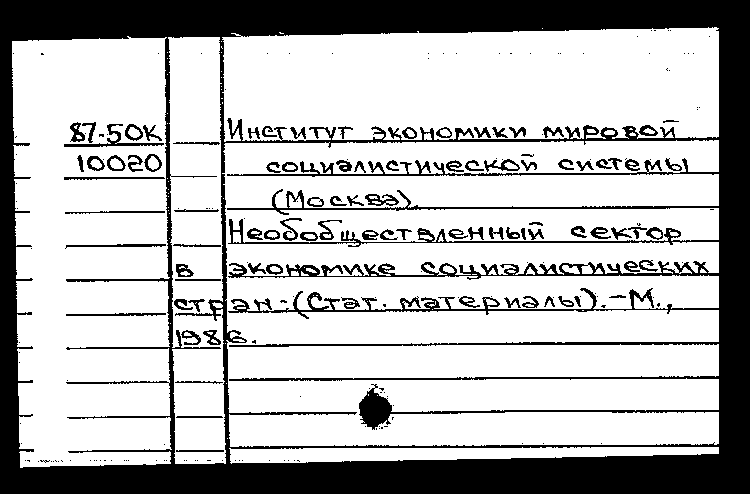 87-50К Институт экономики мировой
10020 социалистической системы
(Москва).
Необобществленный сектор
в экономике социалистических
стран.-(Стат. материалы).-М.,
1986.